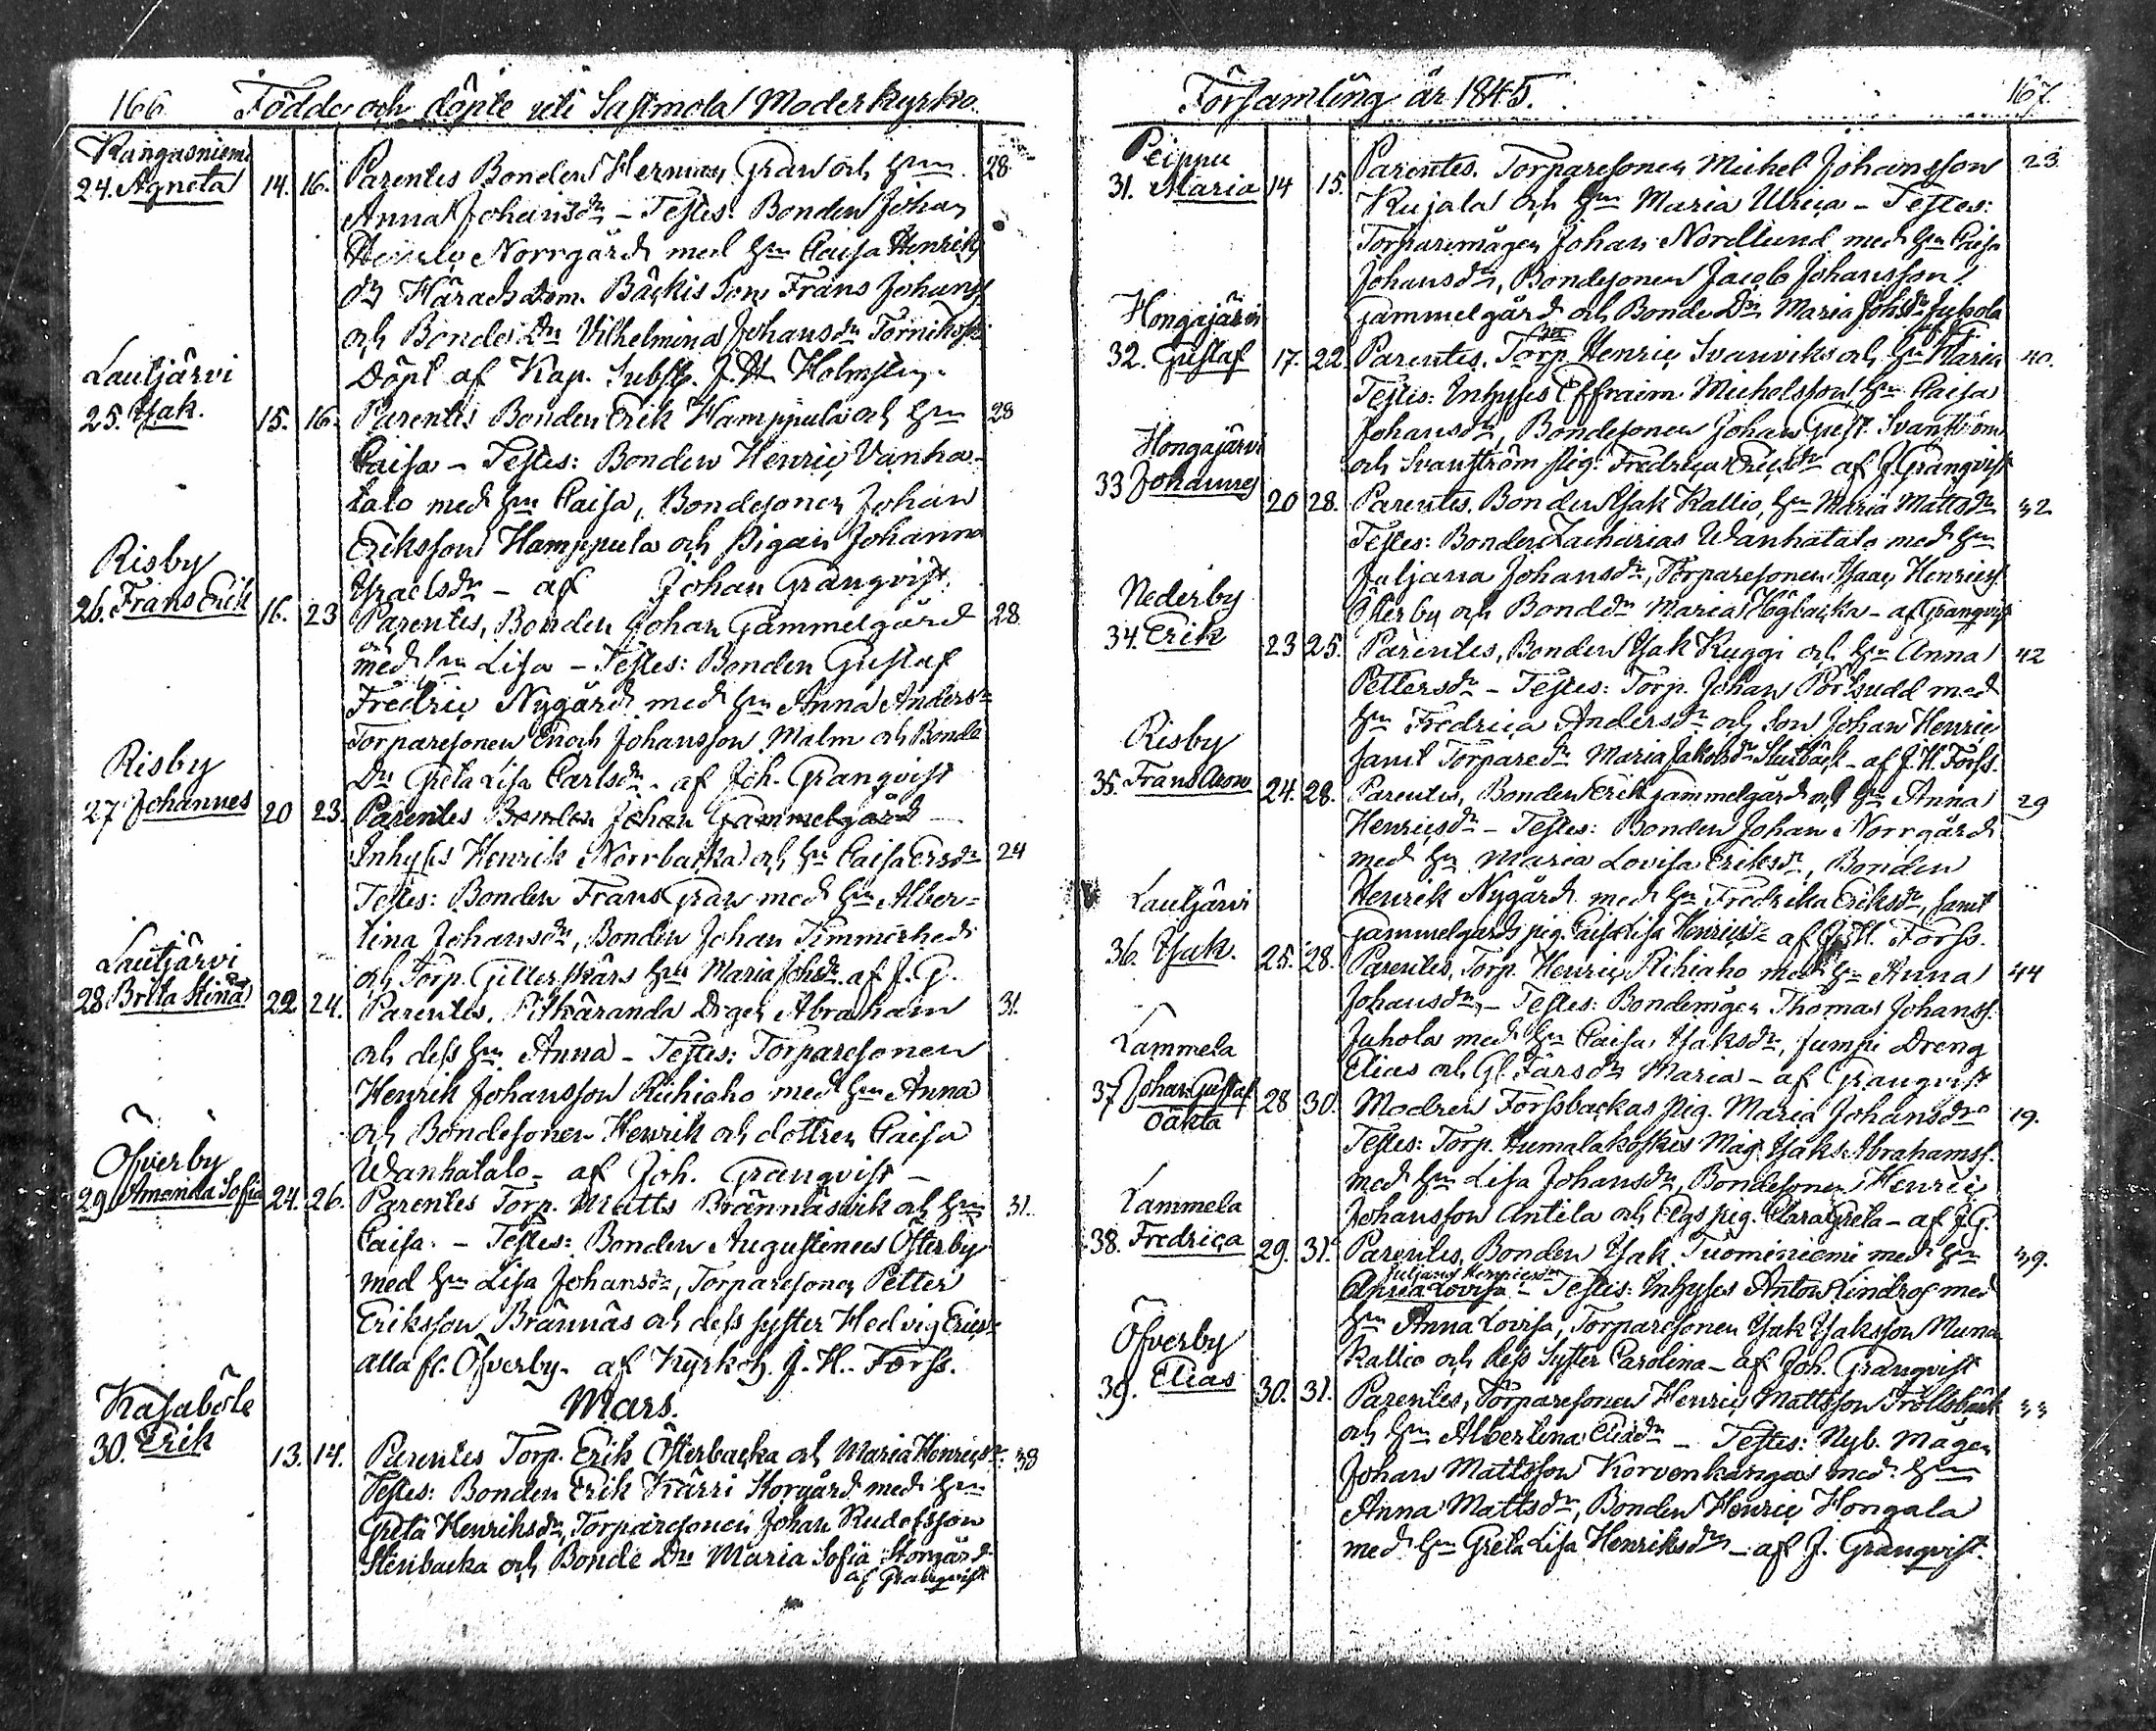 166 Födde och döpte uti Sastmola Moderkyrko
Kangasniemi
24. Agneta 14. 16. Parentes Bonden Herman Graw och Hru 28
Anna Johansdr – Testes: Bonden Johan
Norrgård med Hru Caisa Henriks
dr Härads Dom. Bäckis Son Frans Johans
och Bonde Dr Vilhelmina Johansdr
Döpt af Kap. Subst. J. H. Holmsten.
Lautjärvi
25. Isak. 15. 16. Parentes Bonden Erik Hamppula och Hru 28
Caisa – Testes: Bonden Henric Vanha-
talo med Hru Caisa, Bondesonen Johan
Eriksson Hamppula och Pigan Johanna
Israelsdr – af Johan Granqvist.
Risby
26. Frans Erik 16. 23 Parentes, Bonden Johan Gammelgård 28
och
med Hru Lisa – Testes: Bonden Gustaf
Fredric Nygård med Hru Anna Andersdr
Torparesonen Enoch Johansson Malm och Bonde
Dr Greta Lisa Carlsdr. af Joh. Granqvist
Risby
27 Johannes 20 23. Parentes Bonden Johan Gammelgård
Inhyses Henrik Norrbacka och Hr Caisa Ersdr 24
Testes: Bonden Frans Graw med Hru Alber=
tina Johansdr, Bonden Johan Timmerhed
och Torp. Gillerskärs Hru Maria Johsdr af J. G.
Lautjärvi
28 Brita Stina 22 24. Parentes, Pitkäranda Dreg Abraham 31.
och dess Hru Anna – Testes: Torparesonen
Henrik Johansson Riihiaho med Hru Anna
och Bondesonen Henrik och dottren Caisa
Wanhatalo – af Joh. Granqvist –
Öfverby
29. Amanda Sofia 24. 26. Parentes Torp. Matts Brännäsvik och Hru 31.
Caisa. – Testes: Bonden Augustinus Österby
med Hru Lisa Johansdr, Torparesonen Petter
Eriksson Brännäs och dess syster Hedvig Ericsdr
alla fr. Öfverby. af Kyrkoh. J. H. Forss.
Mars.
Kasaböle
30. Erik 13. 14. Parentes Torp. Erik Österbacka och Maria Henricsdr 38
Testes: Bonden Erik Kärri Storgård med Hru
Greta Henriksdr, Torparesonen Johan Rudolfsson
Stenbacka och Bonde Dr Maria Sofia Storgård
af Granqvist
Församling år 1845. 167.
Peippu
31. Maria 14 15. Parentes. Torparesonen Michel Johansson 23
Kujala och Hru Maria Ulrica – Testes:
Torparemågen Johan Nordlund med Hru Caisa
Johansdr, Bondesonen Jacob Johansson
Gammelgård och Bonde Dr Maria Johsdr Juhola
af J. G.
Hongajärvi
32. Gustaf 17. 22. Parentes. Torp. Henric Svanviks och Hru Maria 40.
Testes: Inhyses Effraim Michelsson Hru Caisa
Johansdr, Bondesonen Johan Gust. Svanström
och Svanström pig. Fredrica Ericsdr af J. Granqvist
Hongajärvi
33 Johannes 20 28. Parentes. Bonden Isak Kallio, Hru Maria Mattsdr 32
Testes: Bonden Zacharias Wanhatalo med Hru
Juljana Johansdr, Torparesonen Isaac Henricss.
Österby och Bonddr Maria Högbacka – af Granqvist
Nederby
34. Erik 23 25. Parentes, Bonden Isak Kuggi och Hru Anna 42
Pettersdr – Testes: Torp. Johan Pörtsudd med
Hru Fredrica Andersdr och Son Johan Henric
samt Torparedr Maria Jakobsdr – af J. H. Forss.
Risby
35. Frans Aron 24. 28. Parentes, Bonden Erik Gammelgård och Hru Anna 29
Henricsdr – Testes: Bonden Johan Norrgård
med Hru Maria Lovisa Eriksdr, Bonden
Henrik Nygård med Hru Fredrika Eriksdr, samt
Gammelgards pig. Caisa Lisa Henricsdr af J. H. Forss.
Lautjärvi
36. Isak. 25. 28. Parentes, Torp. Henric Riihiaho med Hru Anna 44
Johansdr – Testes: Bondemågen Thomas Johanss.
Juhola med Hru Caisa Isaksdr, Dreng
Elias och Maria – af Granqvist
Lammela
37 Johan Gustaf 28 30. Modren Forssbackas pig. Maria Johansdr 19.
oäkta Testes: Torp. Humalakoskis Måg Isaks Abrahamss.
med Hru Lisa Johansdr, Bondesonen Henric
Johansson Antila och pig. Clara Greta – af J. G.
Lammela
38. Fredrica 29. 31. Parentes, Bonden Isak Tuominiemi med Hru 39.
Juljana Henricsdr
Anna Lovisa – Testes: Inhyses Anton Lindros med
Hru Anna Lovisa, Torparesonen Isak Isaksson Muna
Kallio och dess Syster Carolina – af Joh. Granqvist
Öfverby
39. Elias 30. 31. Parentes, Torparesonen Henric Mattsson Trollsbäck 33
och Hru Albertina Eliædr – Testes: Nyb. Mågen
Johan Mattsson Korvenkangas med Hru
Anna Mattsdr, Bonden Henric Hongala
med Hru Greta Lisa Henriksdr – af J. Granqvist.